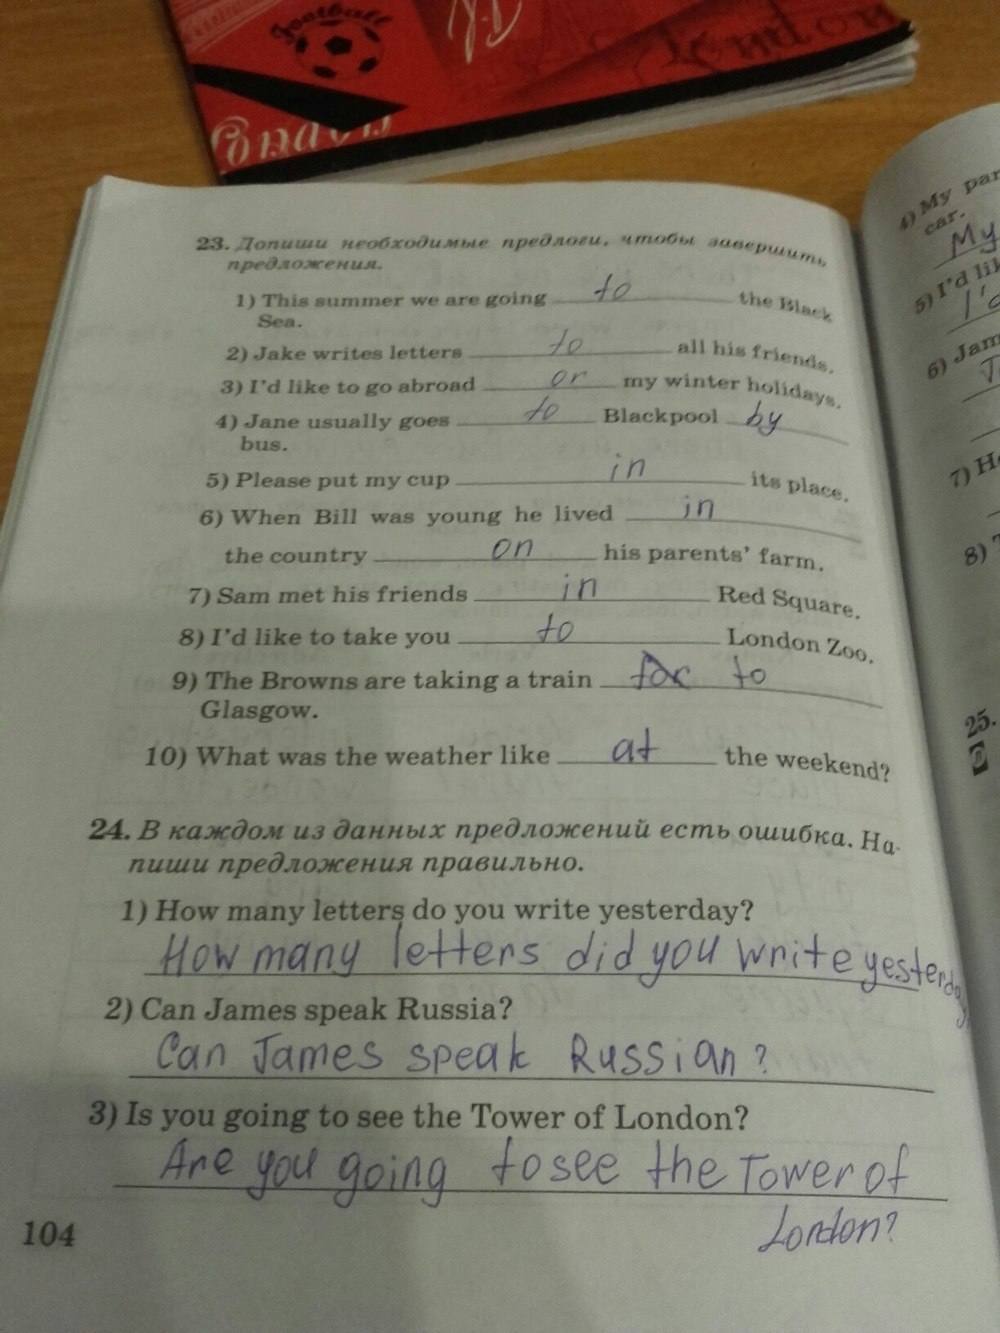 Football
London
London
23. Допиши необходимые предлоги, чтобы завершить
предложения.
1) This summer we are going to the Black
Sea.
2) Jake writes letters to all his friends.
3) I'd like to go abroad or my winter holidays.
4) Jane usually goes to Blackpool by
bus.
5) Please put my cup in its place.
6) When Bill was young he lived in
the country on his parents' farm.
7) Sam met his friends in Red Square.
8) I'd like to take you to London Zoo.
9) The Browns are taking a train to
Glasgow.
10) What was the weather like at the weekend?
24. В каждом из данных предложений есть ошибка. На-
пиши предложения правильно.
1) How many letters do you write yesterday?
How many letters did you write yesterday
2) Can James speak Russia?
Can James speak Russian?
3) Is you going to see the Tower of London?
Are you going to see the Tower of
London?
104
4) My par
car.
My
5) I'd lik
6) Jam
7) H
8)
25.